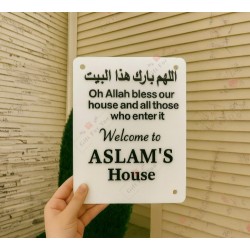 اللهم بارك هذا البيت
Oh Allah bless our
house and all those
who enter it
Welcome to
ASLAM'S
House